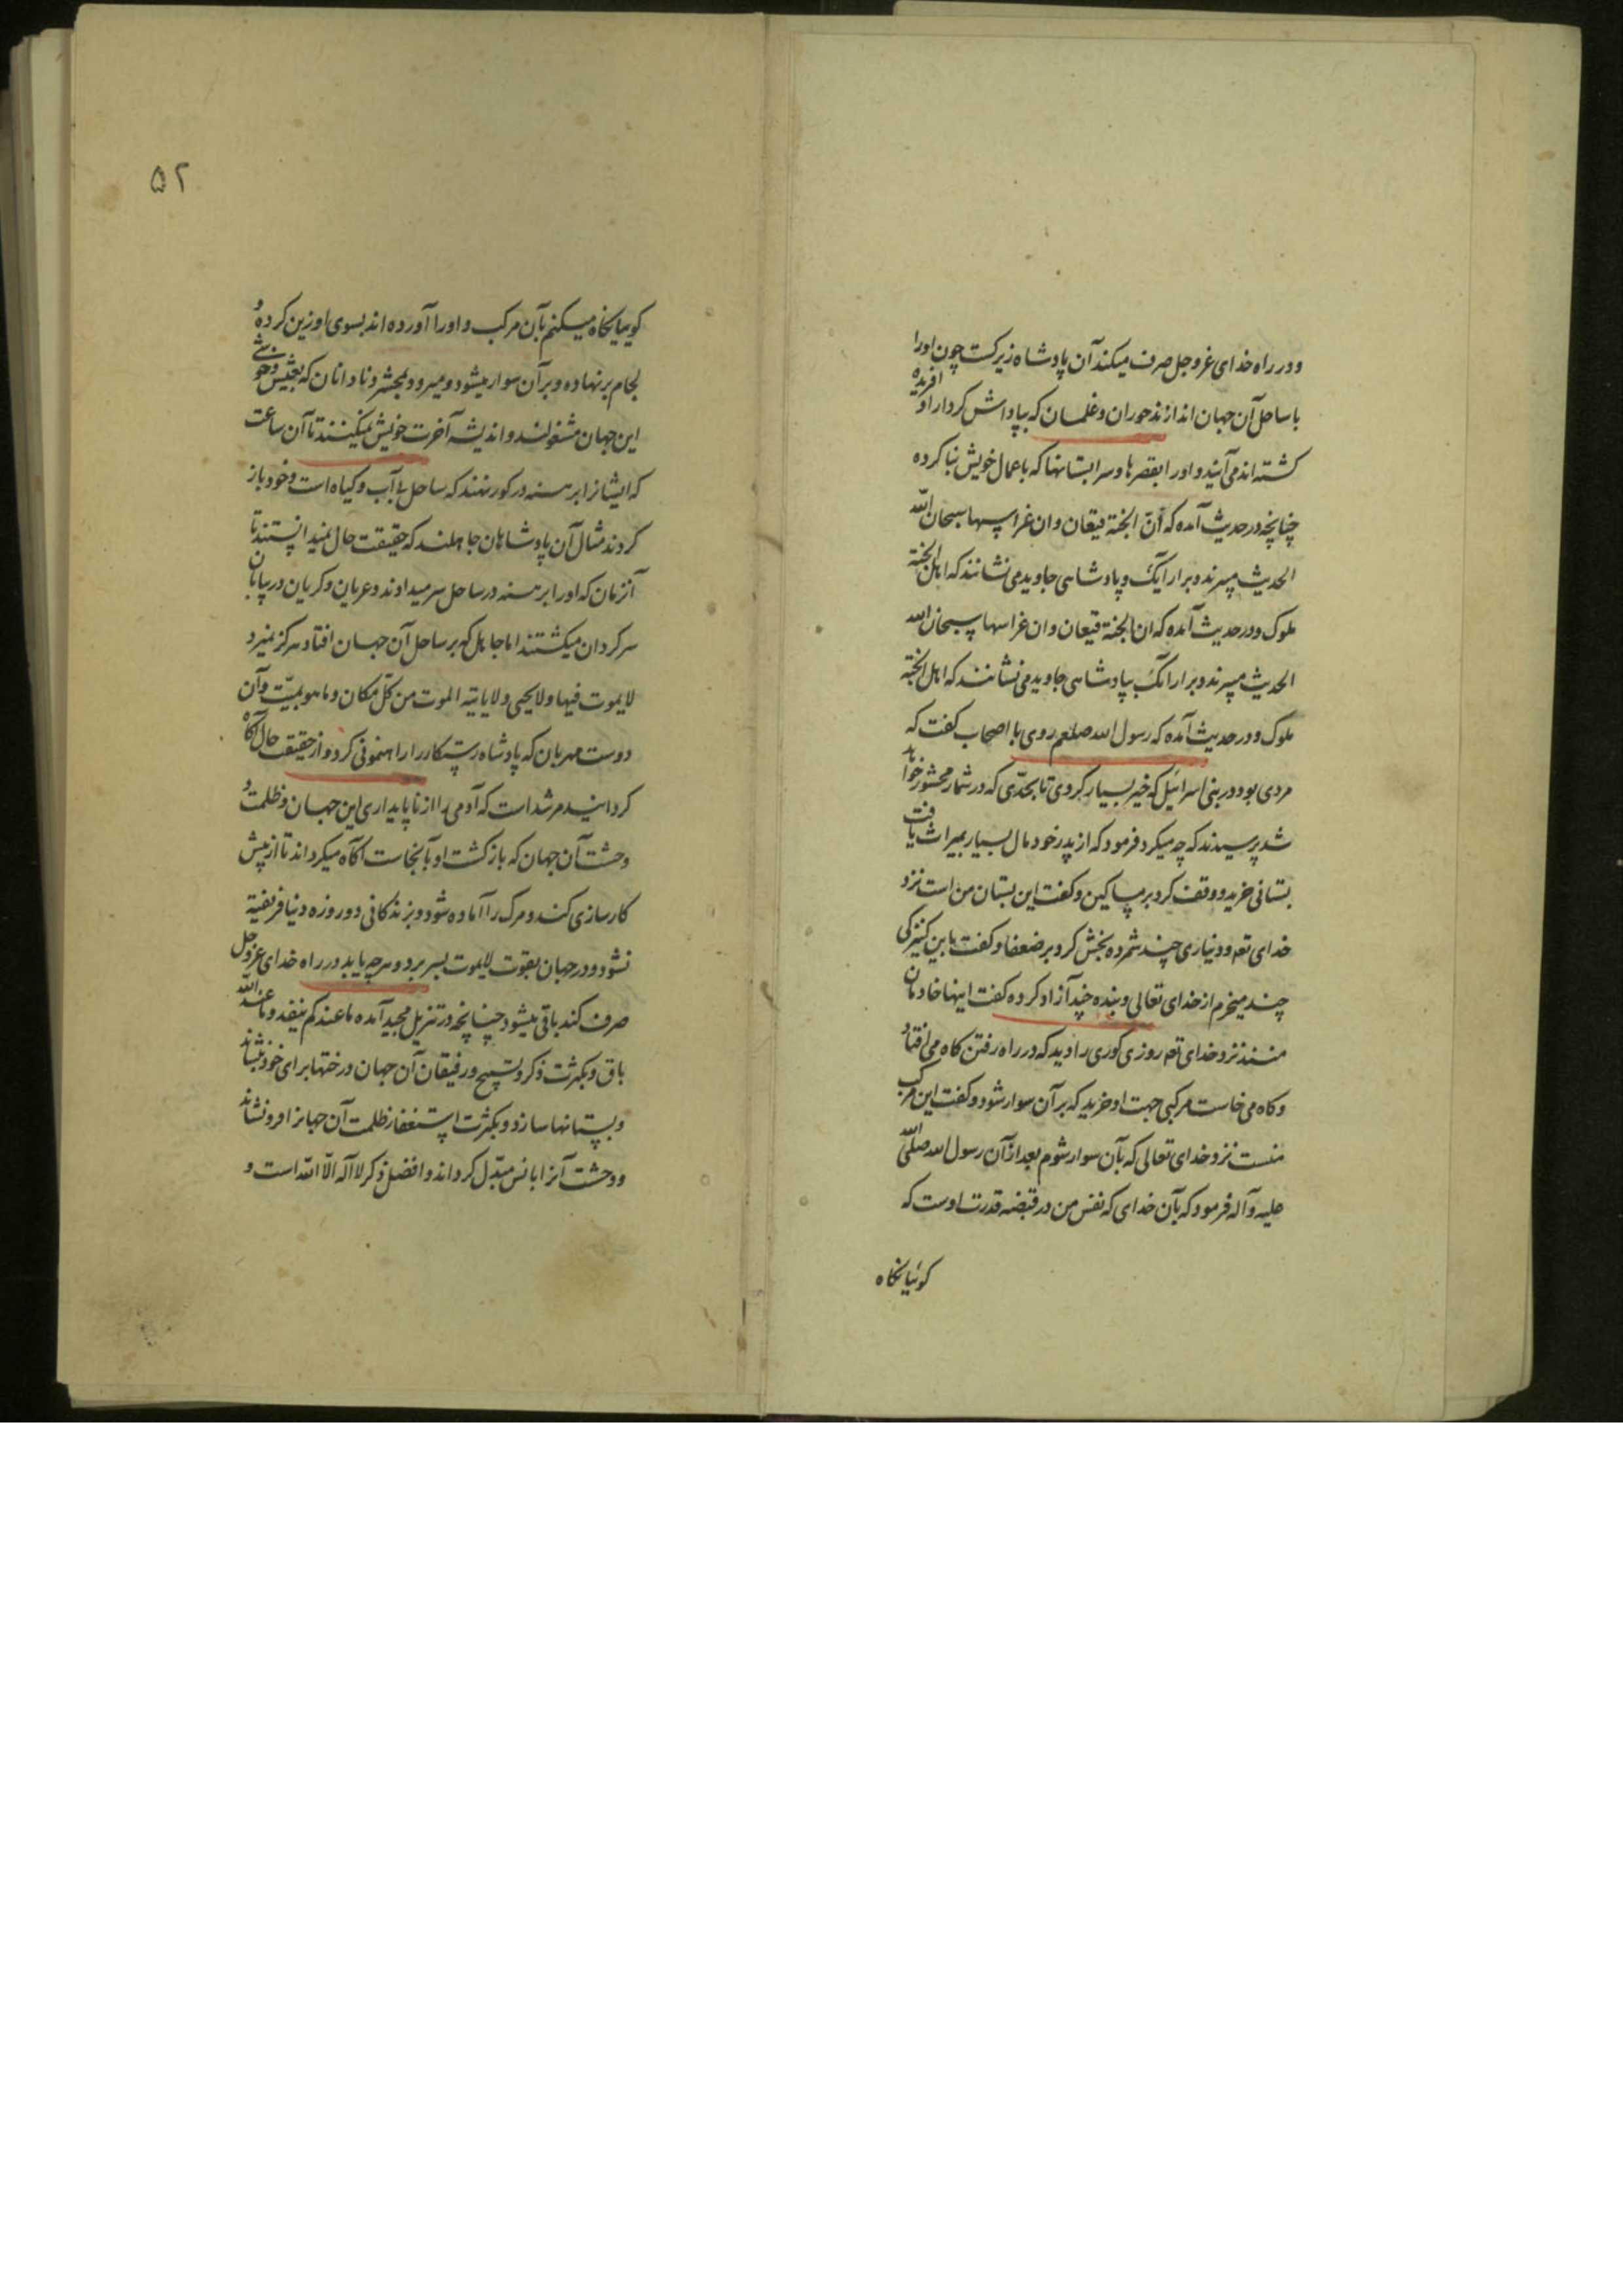 و در راه خدای عز و جل صرف میکند آن پادشاه زیرکست چون او را
با ساحل آن جهان اندازند حوران و غلمان که بپاداش کردار او آفریده
کشته اند می آیند و او را بقصرها و سرابستانها که باعمال خویش بنا کرده
چنانچه در حدیث آمده که انّ الجنة قیعان و ان غراسها سبحان الله
الحدیث میبرند و بر ارایک و پادشاهی جاوید می نشانند که اهل الجنة
ملوک و در حدیث آمده که ان الجنة قیعان و ان غراسها سبحان الله
الحدیث میبرند و بر ارائک بپادشاهی جاوید می نشانند که اهل الجنة
ملوک و در حدیث آمده که رسول الله صلعم روی با اصحاب کفت که
مردی بود در بنی اسرائیل که خیر بسیار کردی تا بحدّی که در شمار محشور خواهد
شد پرسیدند که چه میکرد فرمود که از پدر خود مال بسیار بمیراث یافت
بستانی خرید و وقف کرد بر مساکین و کفت این بستان من است نزد
خدای تعم و دیناری چند شمرده بخش کرد بر ضعفا و کفت باین کنیزکی
چند میخرم از خدای تعالی و بنده چند آزاد کرده کفت اینها خادمان
منند نزد خدای تعم روزی کوری را دید که در راه رفتن کاه می افتاد
و کاه می خاست مرکبی جهت او خرید که بر آن سوار شود و کفت این مرکب
منست نزد خدای تعالی که بآن سوار شوم بعد از آن رسول الله صلی الله
علیه و آله فرمود که بآن خدای که نفس من در قبضه قدرت اوست که
کوئیا نکاه
۵۲
کوییا نکاه میکنم بآن مرکب و او را آورده اند بسوی او زین کرده و
لجام بر نهاده و بر آن سوار میشود و میرود بمحشر و نادانان که بعیش و خوشی
این جهان مشغولند و اندیشه آخرت خویش نمیکنند تا آن ساعت
که ایشانرا برهنه در کور نهند که ساحل بی آب و کیاه است و خود باز
کردند مثال آن پادشاهان جاهلند که حقیقت حال نمیدانستند تا
آنزمان که او را برهنه در ساحل سر میدادند و عریان و کریان در بیابان
سرکردان میکشتند اما جاهل که بر ساحل آن جهان افتاد هرکز نمیرد
لا یموت فیها و لا یحیی و لا یاتیه الموت من کلّ مکان و ما هو بمیّت و آن
دوست مهربان که پادشاه رستکار را راهنمونی کرد و از حقیقت حال آکاه
کردانید مرشد است که آدمی را از ناپایداری این جهان و ظلمت و
وحشت آن جهان که بازکشت او بآنجاست آکاه میکرداند تا از پیش
کارسازی کند و مرک را آماده شود و بزندکانی دو روزه دنیا فریفته
نشود و در جهان بقوت لا یموت بسر برد و هر چه یابد در راه خدای عز و جل
صرف کند باقی میشود چنانچه در تنزیل مجید آمده ما عندکم ینفد و ما عند الله
باق و بکثرت ذکر و تسبیح و رفیقان آن جهان درختها برای خود بنشاند
و بستانها سازد و بکثرت استغفار ظلمت آن جهانرا فرو نشاند
و وحشت آنرا بانس مبدّل کرداند و افضل ذکر لا اله الّا الله است و